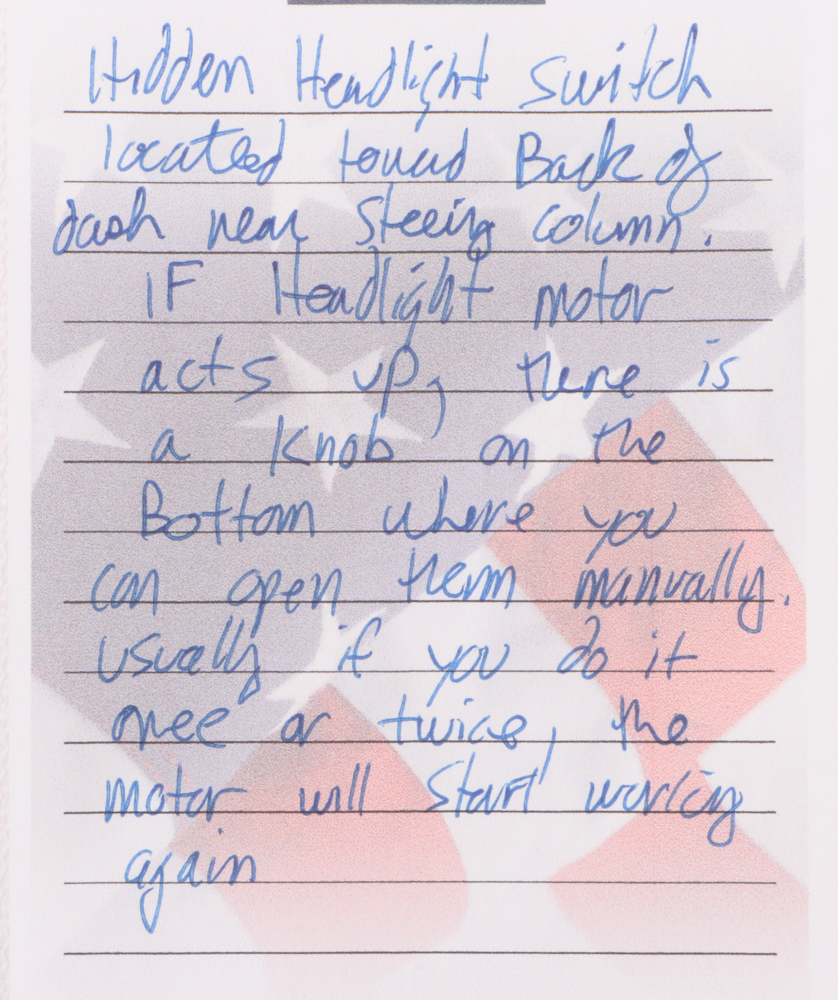 Hidden Headlight Switch
located toward Back of
dash near Steeing column.
IF Headlight motor
acts up, there is
a knob on the
Bottom where you
can open them manually.
Usually if you do it
once or twice, the
motor will start working
again